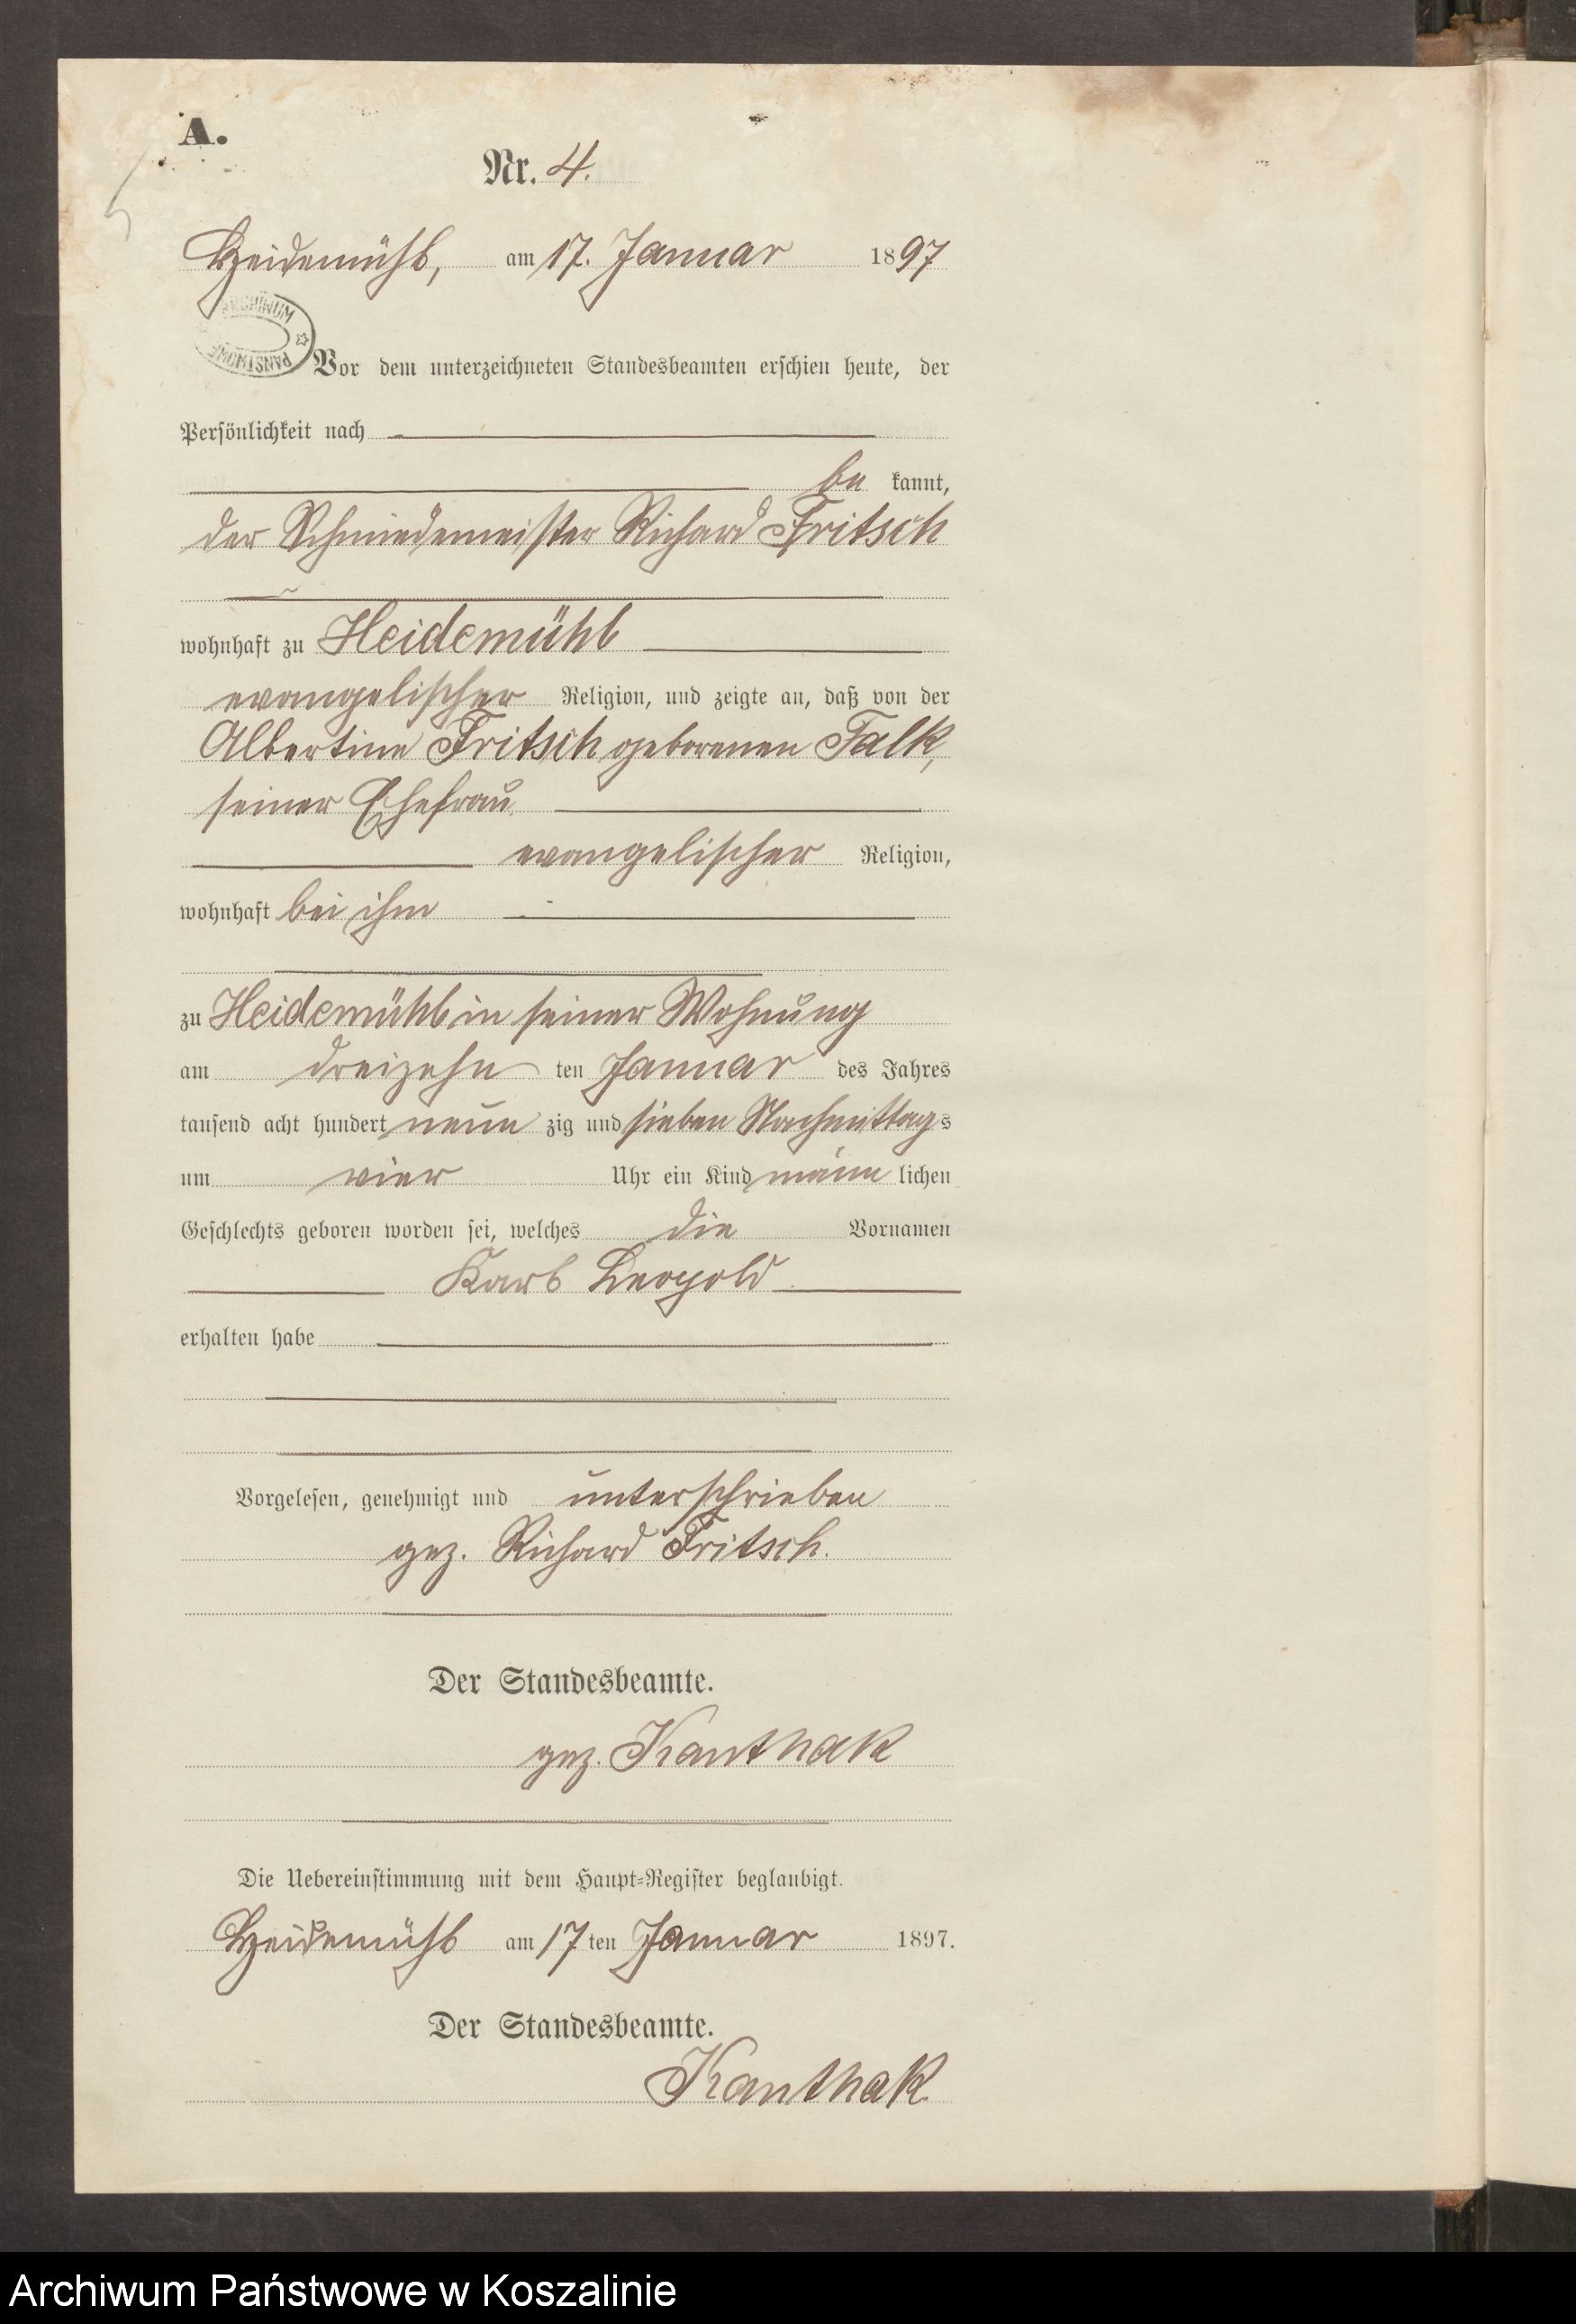 A.
Nr. 4.
Heidemühl, am 17. Januar 1897
ARCHIWUM PAŃSTWOWE
Vor dem unterzeichneten Standesbeamten erschien heute, der
Persönlichkeit nach
be kannt,
der Schmiedemeister Richard Fritsch
wohnhaft zu Heidemühl
evangelischer Religion, und zeigte an, daß von der
Albertine Fritsch geborenen Falk,
seiner Ehefrau
evangelischer Religion,
wohnhaft bei ihm
zu Heidemühl in seiner Wohnung
am dreizehn ten Januar des Jahres
tausend acht hundert neun zig und sieben Nachmittags
um vier Uhr ein Kind männ lichen
Geschlechts geboren worden sei, welches die Vornamen
Karl Leopold
erhalten habe
Vorgelesen, genehmigt und unterschrieben
gez. Richard Fritsch.
Der Standesbeamte.
gez. Kanthak
Die Uebereinstimmung mit dem Haupt-Register beglaubigt.
Heidemühl am 17 ten Januar 1897.
Der Standesbeamte.
Kanthak.
Archiwum Państwowe w Koszalinie